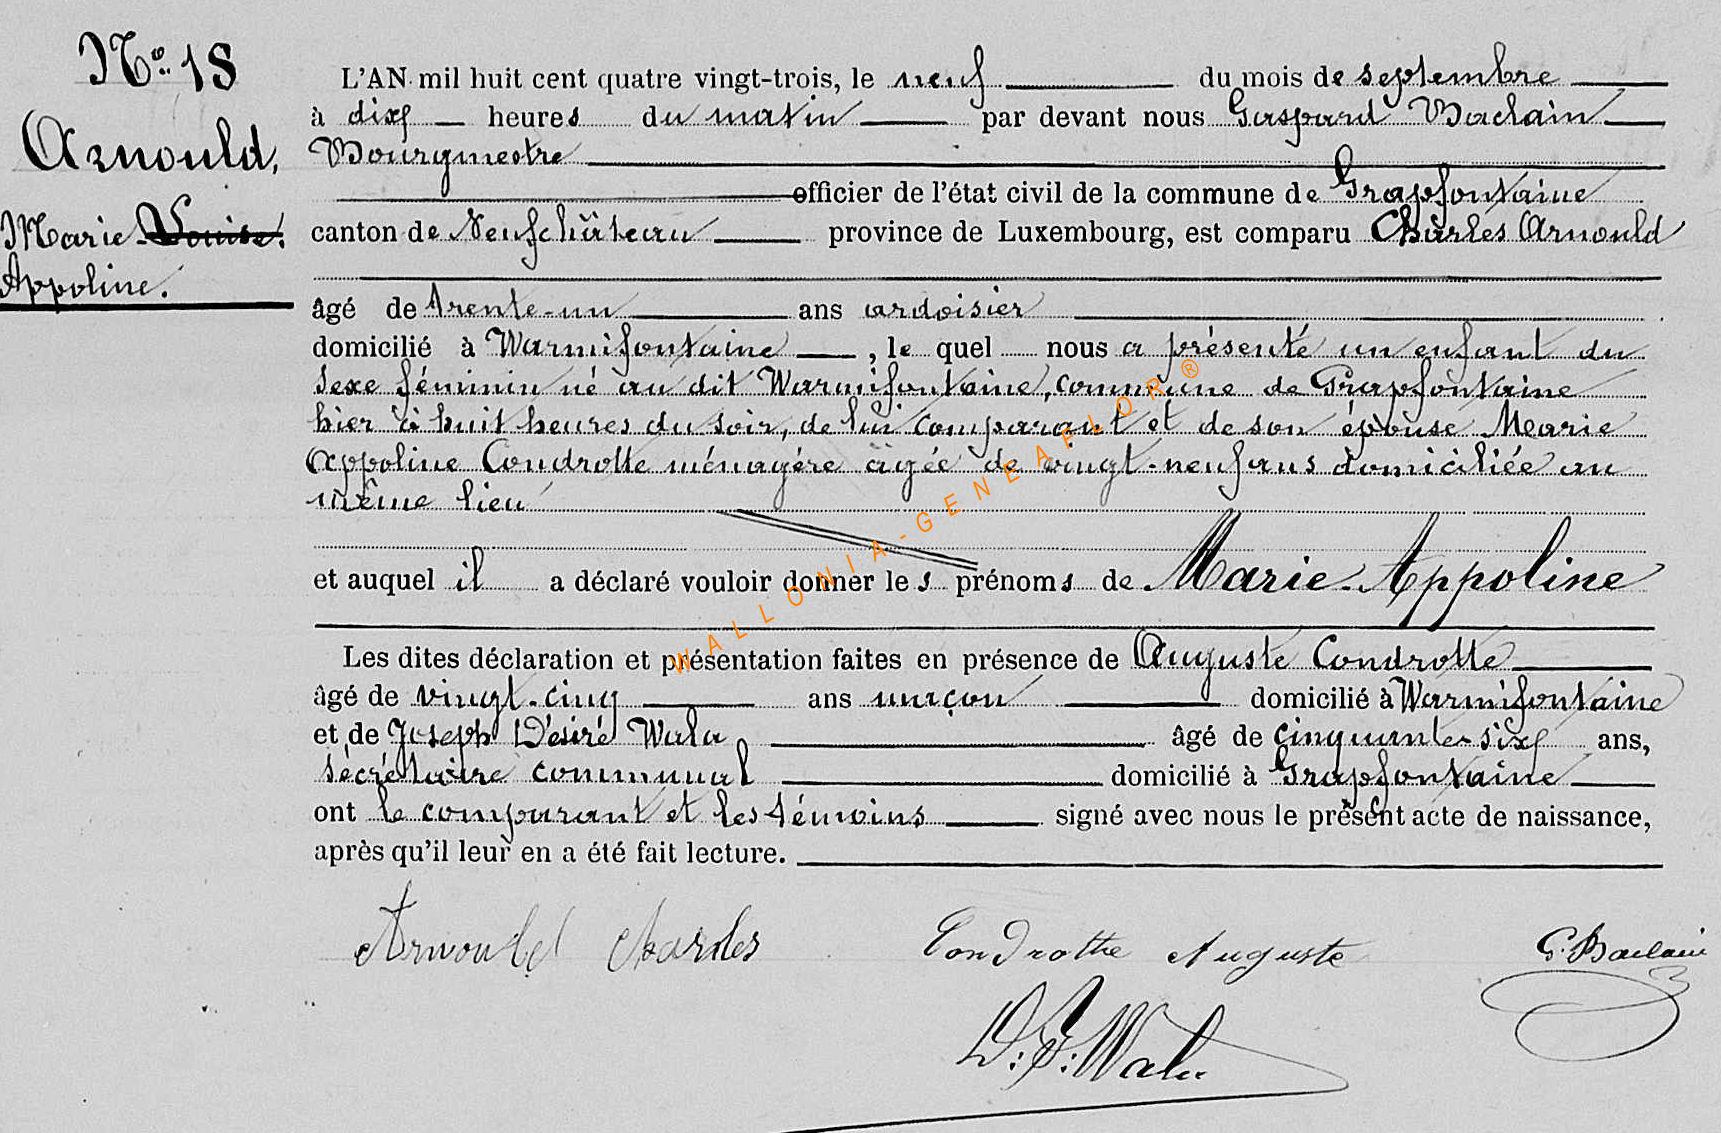 No. 18
Arnould,
Marie Louise.
Appoline.
L'AN mil huit cent quatre vingt-trois, le neuf du mois de septembre
à dix heures du matin par devant nous Gaspard Baclain
Bourgmestre
officier de l'état civil de la commune de Grapfontaine
canton de Neufchâteau province de Luxembourg, est comparu Charles Arnould
âgé de trente-un ans ardoisier
domicilié à Warmifontaine, le quel nous a présenté un enfant du
sexe féminin né au dit Warmifontaine, commune de Grapfontaine
hier à huit heures du soir, de lui comparant et de son épouse Marie
Appoline Condrotte ménagère âgée de vingt-neuf ans domiciliée au
même lieu
et auquel il a déclaré vouloir donner les prénoms de Marie-Appoline
Les dites déclaration et présentation faites en présence de Auguste Condrotte
âgé de vingt-cinq ans maçon domicilié à Warmifontaine
et de Joseph Désiré Wala âgé de cinquante-six ans,
sécrétaire communal domicilié à Grapfontaine
ont le comparant et les témoins signé avec nous le présent acte de naissance,
après qu'il leur en a été fait lecture.
Arnould Charles Condrotte Auguste G. Baclain
D. J. Wala
WALLONIA-GENEAFLOR®